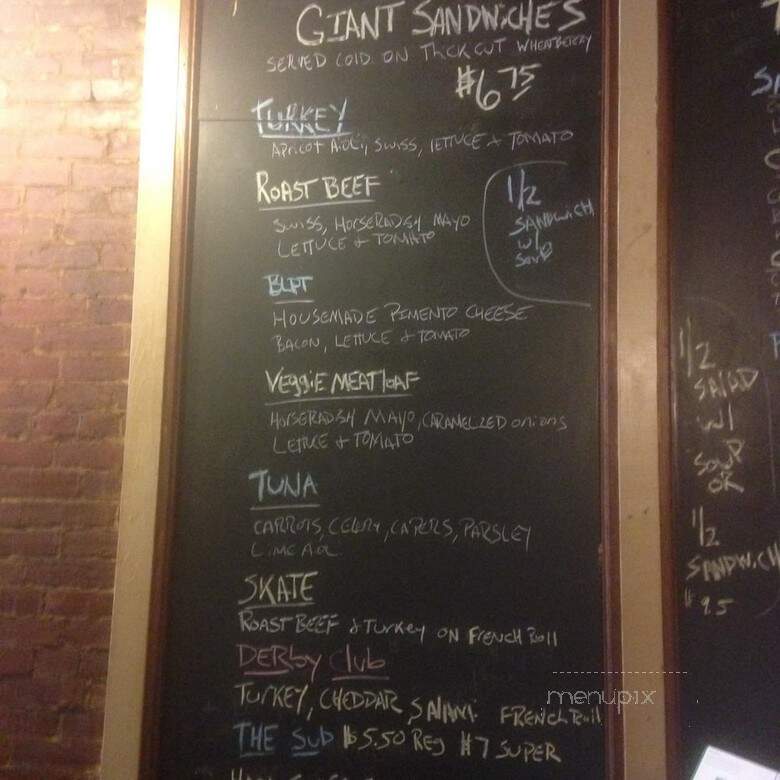 GIANT SANDWICHES
SERVED COLD ON THICK CUT WHEATBERRY
$6.75
TURKEY
APRICOT AIOLI, SWISS, LETTUCE + TOMATO
ROAST BEEF
SWISS, HORSERADISH MAYO
LETTUCE + TOMATO
1/2
SANDWICH
W/
SOUP
BLPT
HOUSEMADE PIMENTO CHEESE
BACON, LETTUCE + TOMATO
VeggiE MEATlOAF
HORSERADISH MAYO, CARAMELIZED onions
LETTUCE + TOMATO
TUNA
CARROTS, CELERY, CAPERS, PARSLEY
LIME
SKATE
ROAST BEEF & TURKEY ON FRENCH Roll
DERby Club
TURKEY, CHEDDAR, SALAMI FRENCH Roll
THE SUB $5.50 REG $7 SUPER
1/2
SALAD
W/
SOUP
OR
1/2
SANDWICH
menupix